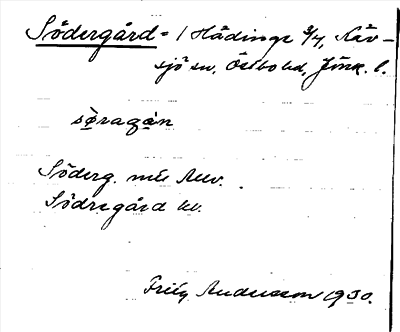 Södergård = 1 Hådinge 3/4, Näv-
sjö sn, Östbo hd, Jönk. l.
søragan
Söderg.
Södregård
Fritz Andersson 1930.